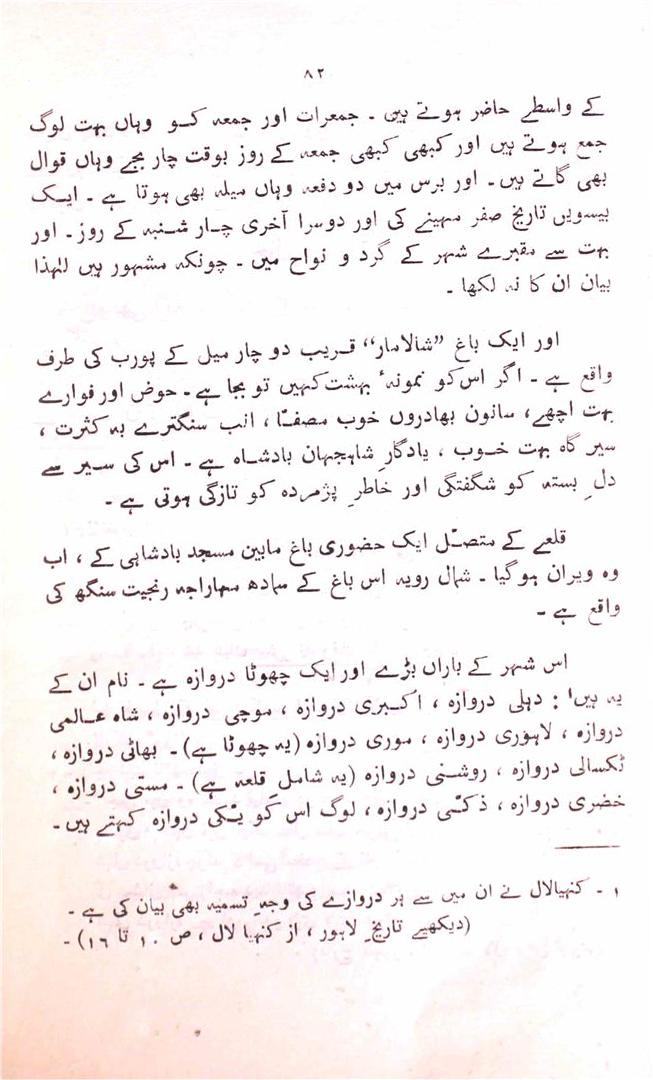 ۸۲
کے واسطے حاضر ہوتے ہیں ۔ جمعرات اور جمعہ کو وہاں بہت لوگ
جمع ہوتے ہیں اور کبھی کبھی جمعہ کے روز بوقت چار بجے وہاں قوال
بھی گاتے ہیں ۔ اور برس میں دو دفعہ وہاں میلہ بھی ہوتا ہے ۔ ایک
بیسویں تاریخ صفر مہینے کی اور دوسرا آخری چار شنبہ کے روز ۔ اور
بہت سے مقبرے شہر کے گرد و نواح میں ۔ چونکہ مشہور ہیں لہٰذا
بیان ان کا نہ لکھا ۔
اور ایک باغ ”شالامار“ قریب دو چار میل کے پورب کی طرف
واقع ہے ۔ اگر اس کو نمونۂ بہشت کہیں تو بجا ہے ۔ حوض اور فوارے
بہت اچھے، سانون بھادروں خوب مصفّا ، انب سنگترے بہ کثرت ،
سیر گاہ بہت خوب ، یادگارِ شاہجہان بادشاہ ہے ۔ اس کی سیر سے
دلِ بستہ کو شگفتگی اور خاطرِ پژمردہ کو تازگی ہوتی ہے ۔
قلعے کے متصّل ایک حضوری باغ مابین مسجد بادشاہی کے ، اب
وہ ویران ہوگیا ۔ شمال رویہ اس باغ کے سادھ مہاراجہ رنجیت سنگھ کی
واقع ہے ۔
اس شہر کے باراں بڑے اور ایک چھوٹا دروازہ ہے ۔ نام ان کے
یہ ہیں۱ : دہلی دروازہ ، اکبری دروازہ ، موچی دروازہ ، شاہ عالمی
دروازہ ، لاہوری دروازہ ، موری دروازہ (یہ چھوٹا ہے) ۔ بھاٹی دروازہ ،
ٹکسالی دروازہ ، روشنی دروازہ (یہ شاملِ قلعہ ہے) ۔ مستی دروازہ ،
خضری دروازہ ، ذکّی دروازہ ، لوگ اس کو یکّی دروازہ کہتے ہیں ۔
۱ ۔ کنہیالال نے ان میں سے ہر دروازے کی وجہِ تسمیہ بھی بیان کی ہے ۔
(دیکھیے تاریخِ لاہور ، از کنہیا لال ، ص ۱۰ تا ۱۶) ۔